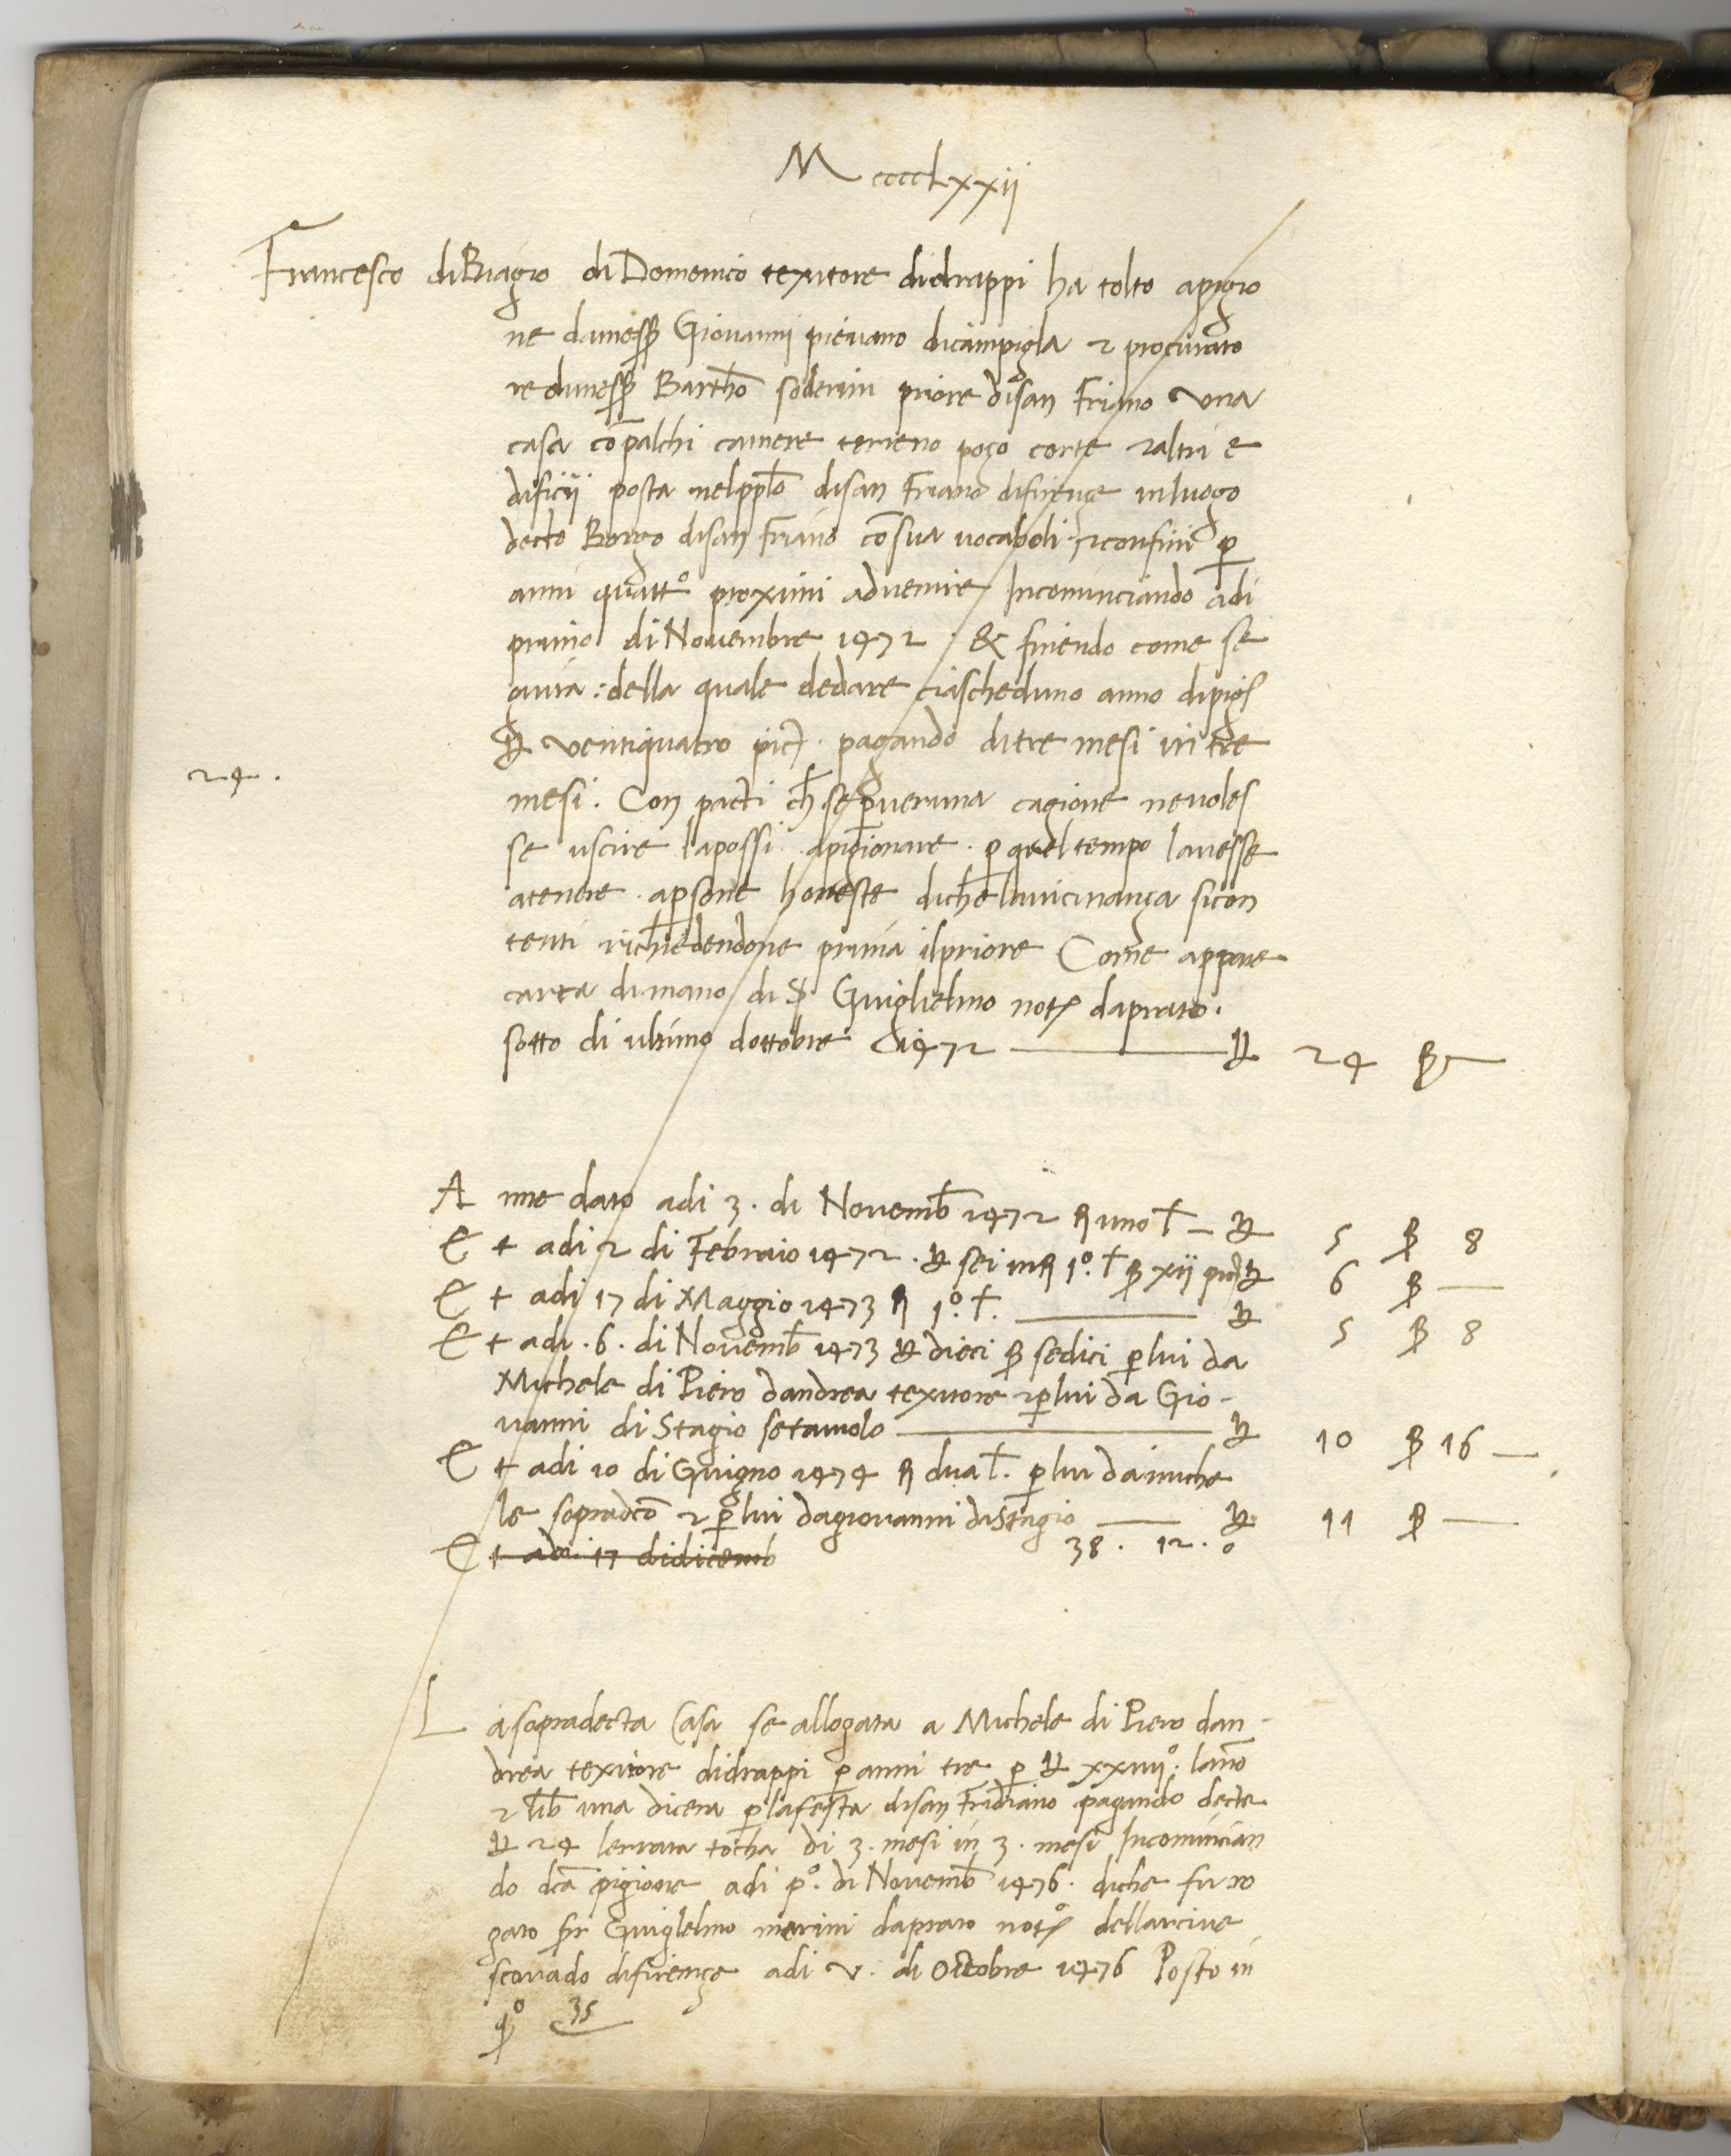 MccccLxxij
Francesco di Biagio di Domenico texitore di drappi ha tolto apigio
ne da messer Giovanni pievano di campigla 2 procurato
re di messer Bartho soderini priore di san Friano una
casa co palchi camere terreno pozo corte 2 altri e
dificij posta nel pplo di san Friano di firenze in luogo
decto Borgo di san Friano co sua vocaboli 2 confini p
anni quatto proximi advenire Incominciando adi
primo di Novembre 1472 & finendo come se
guita: della quale de dare ciascheduno anno di pigo
L ventiquatro picl. pagando di tre mesi in tre
24.
mesi. Con pacti ch se p veruna cagione ne voles
se uscire la possi apigionare. p quel tempo lavesse
a tenere. a psone honeste di che la vicinanza si con
tenti richiedendone prima il priore Come appare
carta di mano di S. Guiglielmo noto da prato.
sotto di ultimo dottobre 1472 — L 24 ß —
A mme dato adi 3. di Novemb 1472 R uno l. — L 5 ß 8
E t adi 2 di Febraio 1472. L sei in R 1o. l ß xii picl L 6 ß —
E t adi 17 di Maggio 1473 R 1o. l. — L 5 ß 8
E t adi. 6. di Novemb 1473 L dieci ß sedici p lui da
Michele di Piero dandrea texitore 2 p lui da Gio-
vanni di Stagio setaiuolo — L 10 ß 16 —
E t adi 10 di Giugno 1474 R dua l. p lui da miche
le sopradco 2 p lui da giovanni di Stagio — L 11 ß —
E t adi 17 di dicemb 38. 12. 0
La sopradecta Casa se allogata a Michele di Piero dan-
drea texitore di drappi p anni tre p L xxiiijo. lanno
2 lib una di cera p la festa di san Fridiano pagando decte
L 24 lerrata tocha di 3. mesi in 3. mesi Incomincian
do dca pigione adi po. di Novemb 1476. di che fu ro
gato ser Guiglelmo merini da prato noto dellarcive
scovado di firenze adi v. di octobre 1476 Posto in
qo 35